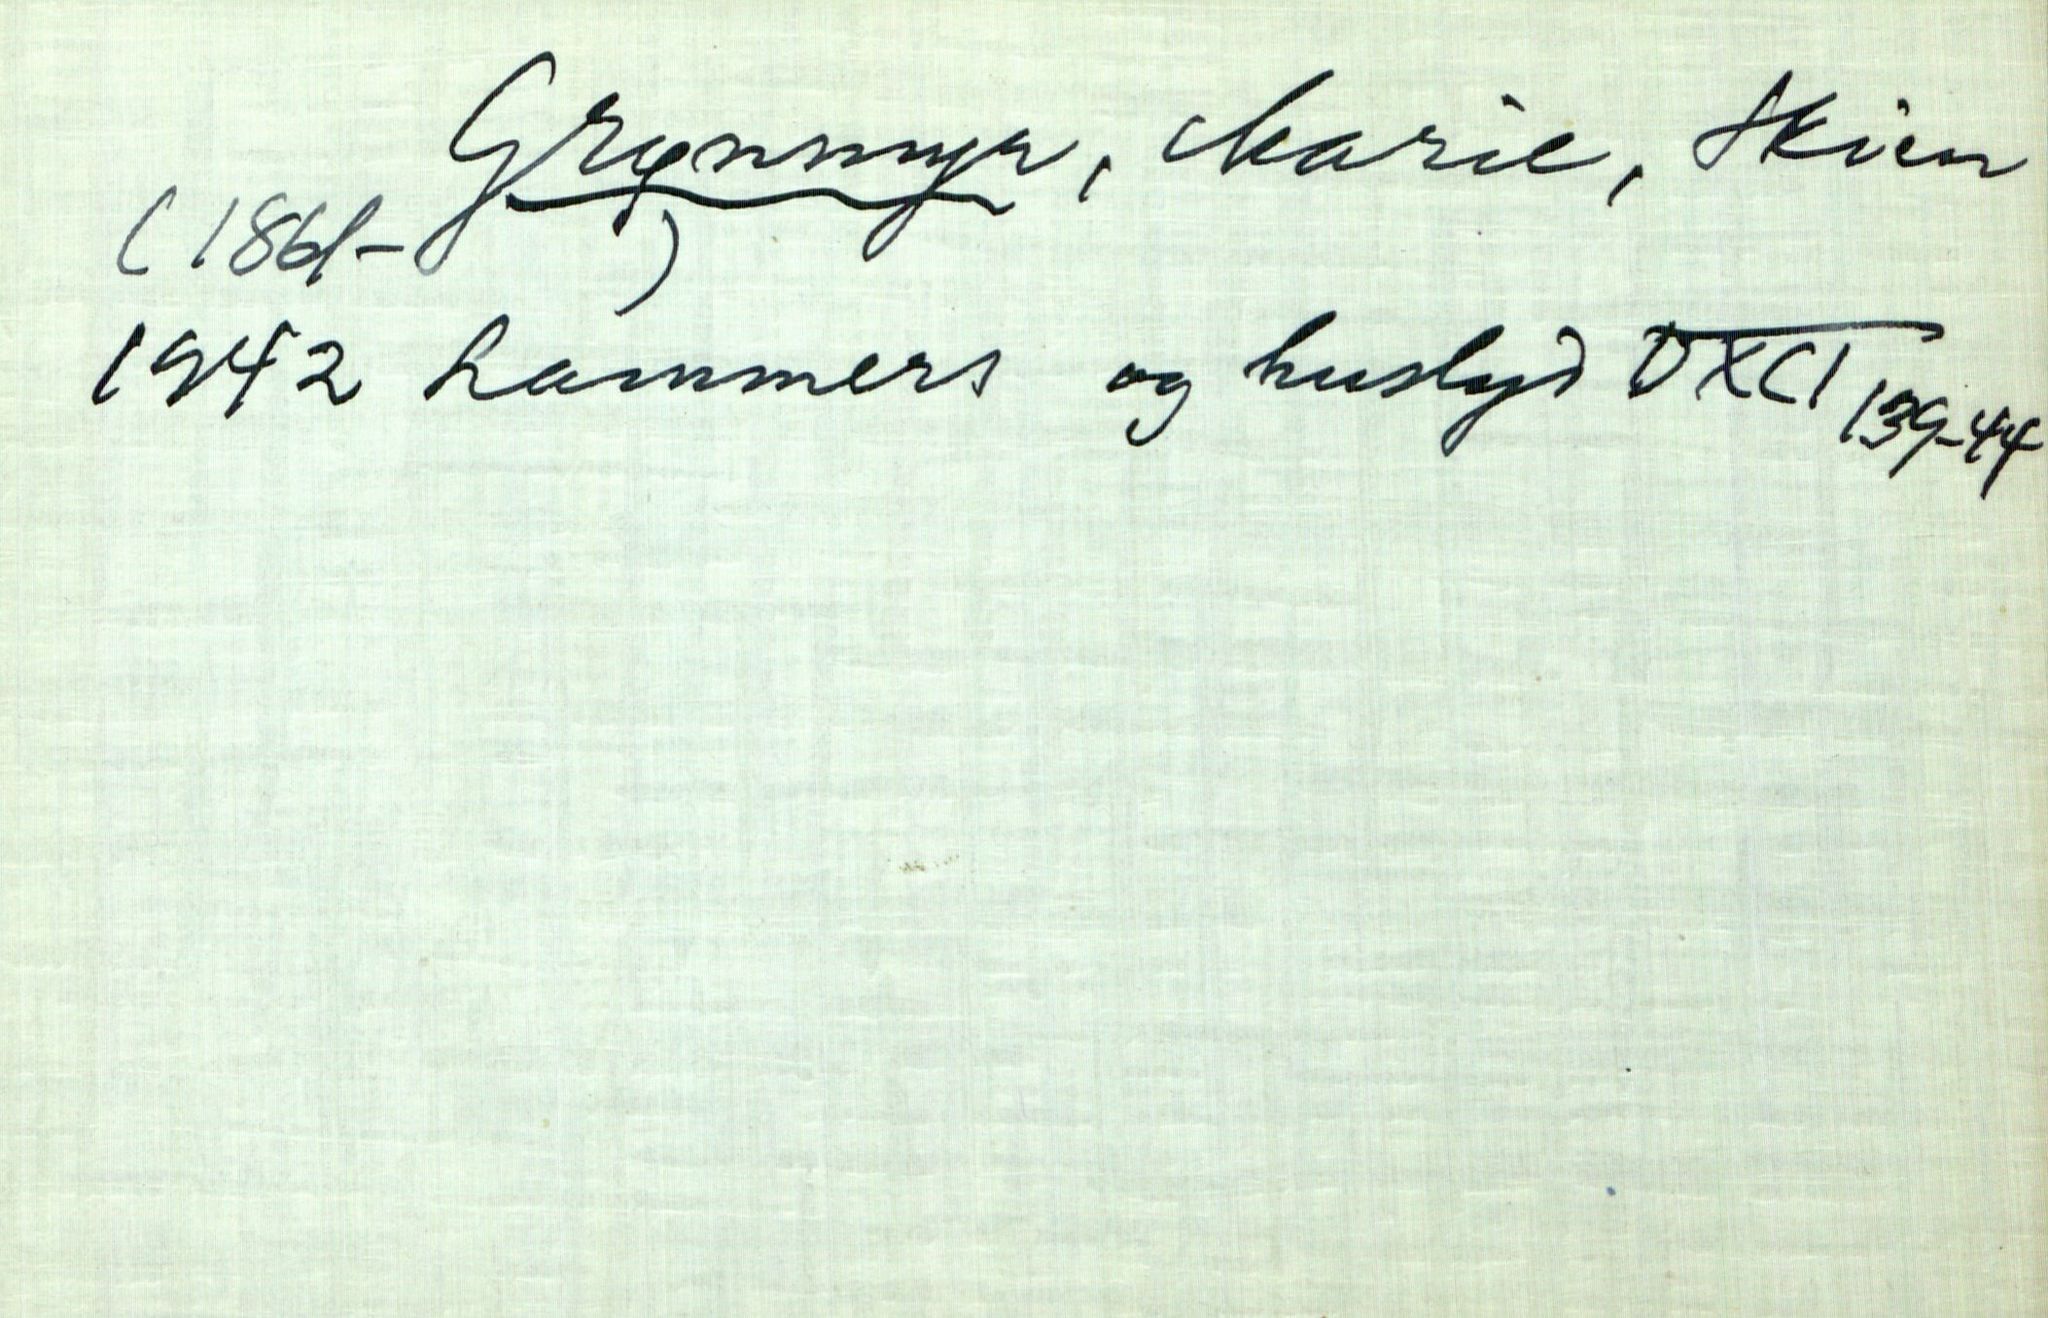 Grønmyr, Marie, Skien
(1861- )
1942 Lammers og huslyd DXCI 139-44